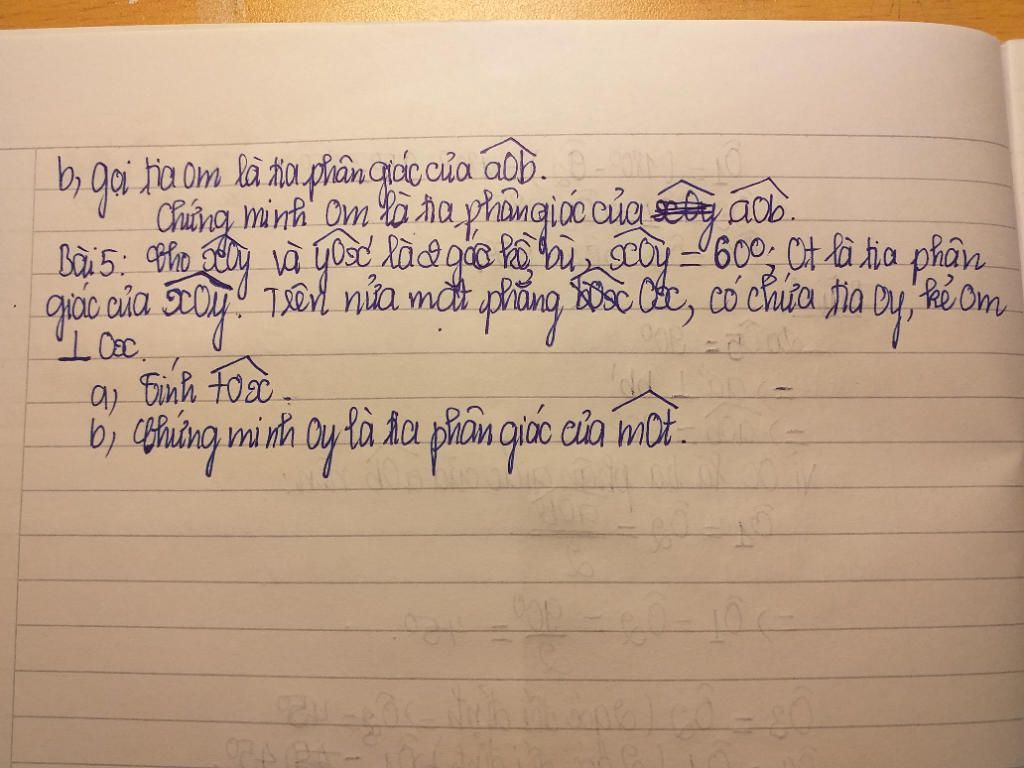 b, gọi tia Om là tia phân giác của aOb.
Chứng minh Om là tia phân giác của xOy aOb.
Bài 5: Cho xOy và yOx' là 2 góc kề bù, xOy = 60°; Ot là tia phân
giác của xOy. Trên nửa mặt phẳng bờ Ox, có chứa tia Oy, kẻ Om
⊥ Ox.
a, Tính tOx.
b, Chứng minh Oy là tia phân giác của mOt.